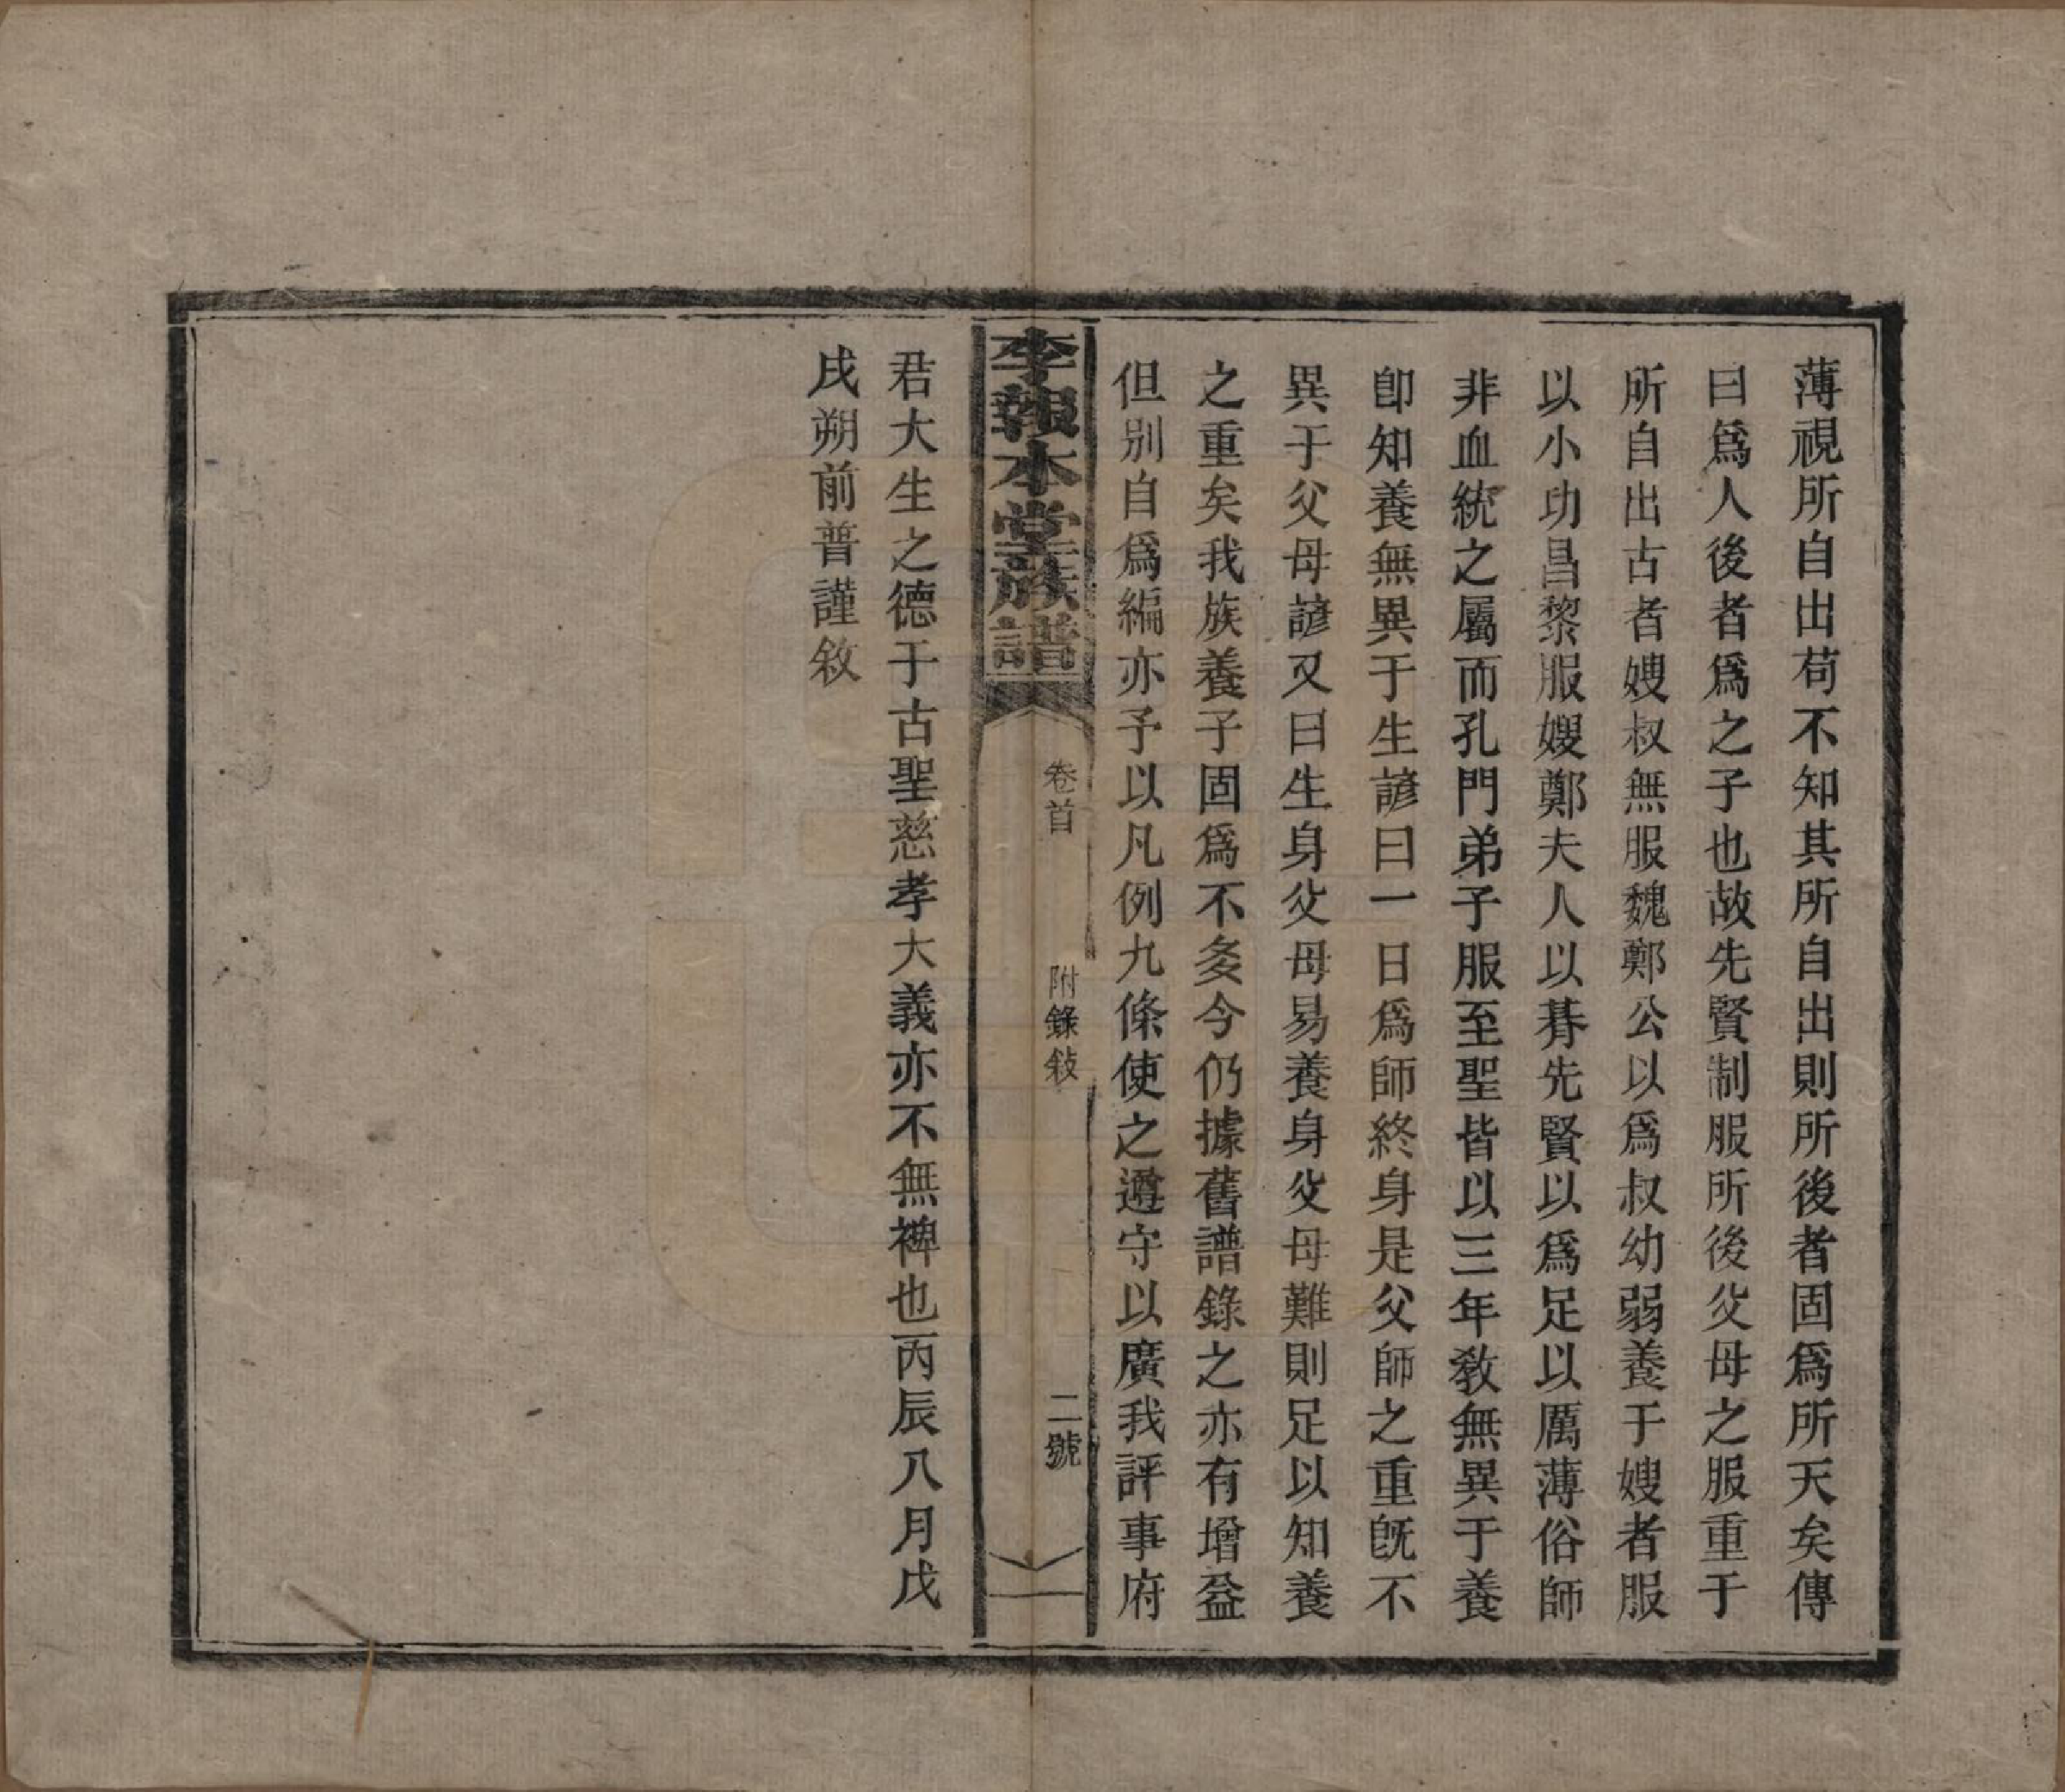 薄視所自出苟不知其所自出則所後者固爲所天矣傳
曰爲人後者爲之子也故先賢制服所後父母之服重于
所自出古者嫂叔無服魏鄭公以爲叔幼弱養于嫂者服
以小功昌黎服嫂鄭夫人以朞先賢以爲足以厲薄俗師
非血統之屬而孔門弟子服至聖皆以三年敎無異于養
卽知養無異于生諺曰一日爲師終身是父師之重旣不
異于父母諺又曰生身父母易養身父母難則足以知養
之重矣我族養子固爲不多今仍據舊譜錄之亦有增益
但别自爲編亦予以凡例九條使之遵守以廣我評事府
李報本堂族譜
卷首
附錄敍
二號
君大生之德于古聖慈孝大義亦不無裨也丙辰八月戊
戌朔前普謹敘